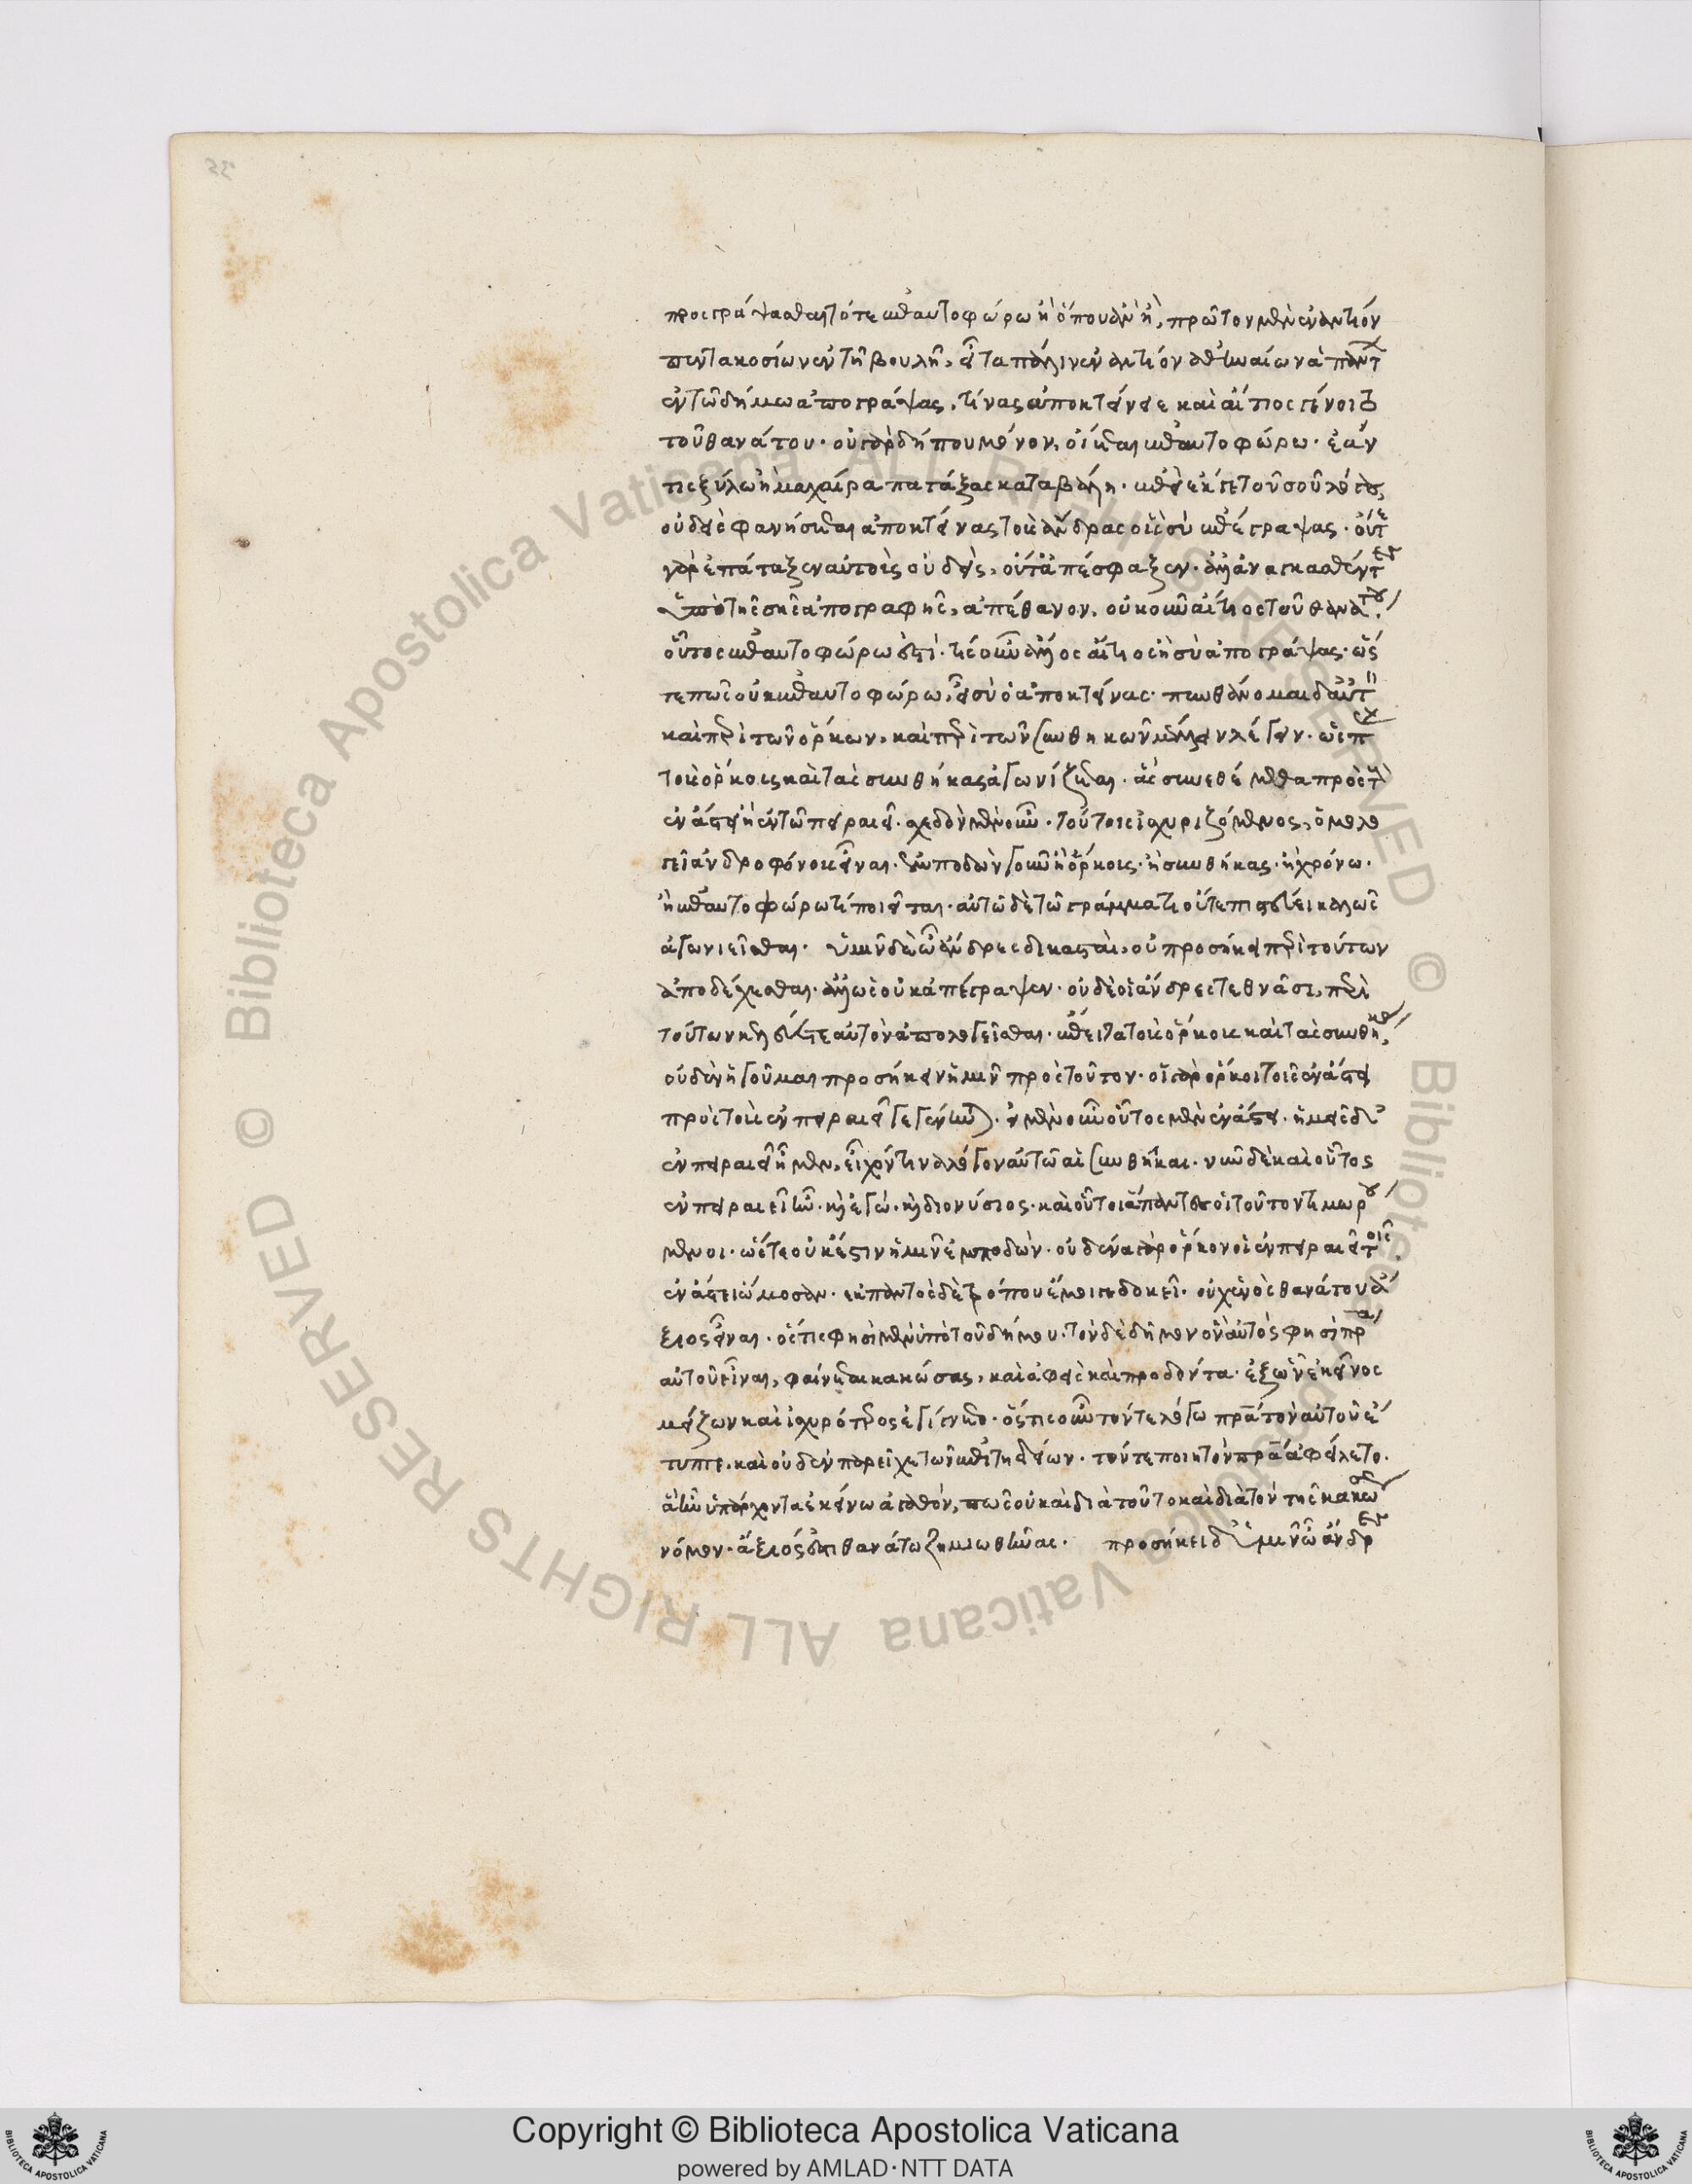 προσγράψασθαι τό τε ἐπαυτοφώρω ἢ ὅπου ἂν ἦ, πρῶτον μὲν ἐναντίον
πεντακοσίων ἐν τῆ βουλῆ, εἶτα πάλιν ἐναντίον ἀθηναίων ἁπάντ
ἐν τῶ δήμω ἀπογράψας, τίνας ἀποκτείνειε καὶ αἴτιος γένοιτο
τοῦ θανάτου· οὐ γὰρ δήπου μόνον, οἴεται ἐπαυτοφώρω· ἐάν
τις ξύλω ἢ μαχαίρα πατάξας καταβάλη· ἐπεὶ ἐκ γε τοῦ σοῦ λόγου,
οὐδεὶς φανήσεται ἀποκτείνας τοὺς ἄνδρας οἷς σὺ ἐπέγραψας· οὔτε
γὰρ ἐπάταξεν αὐτοὺς οὐδεὶς, οὔτ' ἀπέσφαξεν· ἀλλ' ἀναγκασθέντες
ὑπὸ τῆς σῆς ἀπογραφῆς, ἀπέθανον, οὐκοῦν αἴτιος τοῦ θανάτου.
οὗτος ἐπαυτοφώρω ἐστί· τίς οὖν ἄλλος αἴτιος ἢ σὺ ἀπογράψας· ὥς
τε πῶς οὐκ ἐπαυτοφώρω, εἶ σὺ ὁ ἀποκτείνας· πυνθάνομαι δαὐτ
καὶ περὶ τῶν ὅρκων, καὶ περὶ τῶν συνθηκῶν μέλλειν λέγειν· ὡς π
τοὺς ὅρκους καὶ τὰς συνθήκας ἀγωνίζεται· ἃς συνεθέμεθα πρὸς τ
ἐν ἄστει ἢ ἐν τῶ πειραιεῖ· σχεδὸν μὲν οὖν· τούτοις ἰσχυριζόμενος, ὁμολο
γεῖ ἀνδροφόνος εἶναι· ἐμποδὼν γοῦν ἢ ὅρκους· ἢ συνθήκας· ἢ χρόνω·
ἢ ἐπαυτοφώρω τί ποιεῖται· αὐτῶ δὲ τῶ γράμματι οὔτε πιστεύει καλῶς
ἀγωνιεῖσθαι· ὑμῖν δὲ ὦ ἄνδρες δικασταὶ, οὐ προσήκει περὶ τούτων
ἀποδέχεσθαι· ἀλλ' ὡς οὐκ ἀπέγραψεν· οὐδὲ οἱ ἄνδρες τεθνᾶσι, περὶ
τούτων κελεύετε αὐτὸν ἀπολογεῖσθαι· ἔπειτα τοὺς ὅρκους καὶ τὰς συνθή,
οὐδὲν ἡγοῦμαι προσήκειν ἡμῖν πρὸς τοῦτον· οἱ γὰρ ὅρκοι τοῖς ἐν ἄστει
πρὸς τοὺς ἐν πειραιεῖ γεγένηνται· εἰ μὲν οὖν οὗτος μὲν ἐν ἄστει· ἡμεῖς δ'
ἐν πειραιεῖ ἦμεν, εἶχόν τινα λόγον αὐτῶ αἱ συνθῆκαι· νῦν δὲ καὶ οὗτος
ἐν πειραιεῖ ἦν· καὶ ἐγώ· καὶ διονύσιος· καὶ οὗτοι ἅπαντες οἱ τοῦτον τιμωρού
μενοι· ὥστε οὐκ ἔστιν ἡμῖν ἐμποδών· οὐδένα γὰρ ὅρκον οἱ ἐν πειραιεῖ τοῖς.
ἐν ἄστει ὤμοσαν· ἐκ παντὸς δὲ τρόπου ἔμοιγε δοκεῖ· οὐχ ἑνὸς θανάτου ἄ
ξιος εἶναι· ὅς τις φησὶ μὲν ὑπὸ τοῦ δήμου· τὸν δὲ δῆμον ὃν αὐτός φησὶ πρα
αὐτοῦ εἶναι, φαίνεται κακώσας, καὶ ἀφεὶς καὶ προδόντα· ἐξ ὧν ἐκεῖνος
μείζων καὶ ἰσχυρότερος ἐγίγνετο· ὅς τις οὖν τόν τε λόγω πρα τὸν αὐτοῦ ἔ
τυπτε. καὶ οὐδὲν παρεῖχε τῶν ἐπιτηδείων· τόν τε ποιητὸν πρα ἀφείλετο.
ἃ ἦν ὑπάρχοντα ἐκείνω ἀγαθόν, πῶς οὐ καὶ διὰ τοῦτο καὶ διὰ τόν τῆς κακώ
νόμον· ἄξιός ἐστι θανάτω ζημιωθῆναι· προσήκει δ' ὑμῖν ὦ ἄνδρες
Copyright © Biblioteca Apostolica Vaticana
powered by AMLAD·NTT DATA